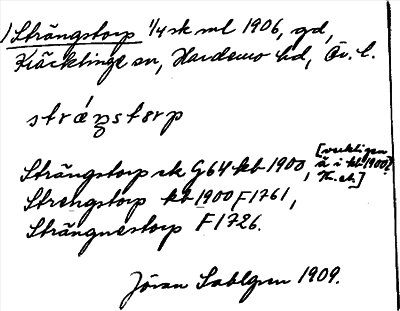 1) Strängstorp 1/4 sk ml 1906, gd,
Kräcklinge sn, Hardemo hd, Ör. l.
stráŋstørp
Strängstorp sk G64 kb 1900, [verkligen
ä i kb 1900!
Strengstorp kb 1900 F1761,
Strängnestorp F1726.
Jöran Sahlgren 1909.